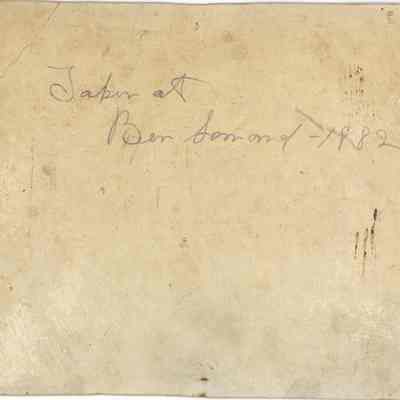 Taken at
Ben Lomond - 1882